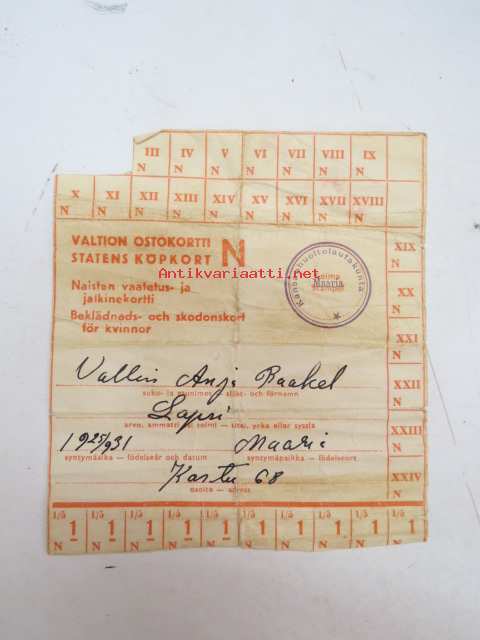 III IV V VI VII VIII IX
N N N N N N N
X XI XII XIII XIV XV XVI XVII XVIII
N N N N N N N N N
VALTION OSTOKORTTI
STATENS KÖPKORT
N
Naisten vaatetus- ja
jalkinekortti
Beklädnads- och skodonskort
för kvinnor
Kansanhuoltolautakunta
Leima
Maaria
Stämpel
Antikvariaatti.net
XIX
N
XX
N
XXI
N
XXII
N
XXIII
N
XXIV
N
Vallin Anja Raakel
suku- ja etunimet - släkt- och förnamn
Lapsi
arvo, ammatti tai toimi - titel, yrke eller syssla
1925/931 Maaria
syntymäaika - födelseår och datum syntymäpaikka - födelseort
Kastu 68
osoite - adress
1/5 1/5 1/5 1/5 1/5 1/5 1/5 1/5 1/5 1/5
1 1 1 1 1 1 1 1 1 1
N N N N N N N N N N